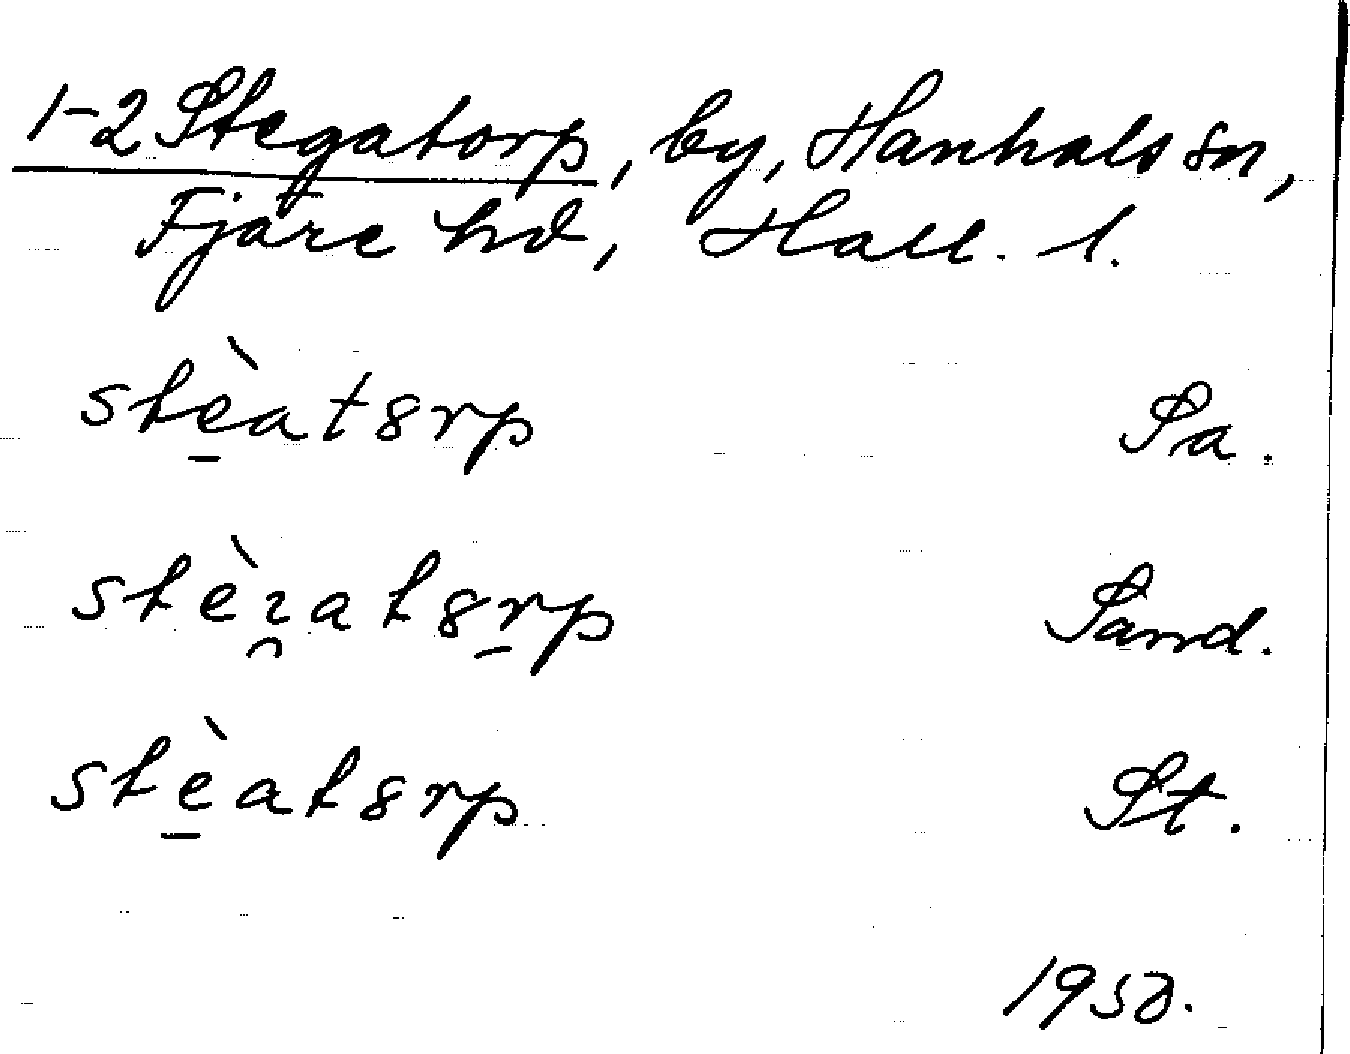 1-2 Stegatorp, by, Hanhals sn,
Fjäre hd, Hall. l.
stè̠atȣrp Sa.
stèɿ̯atȣr̠p Sand.
stè̠atȣrp St.
1950.